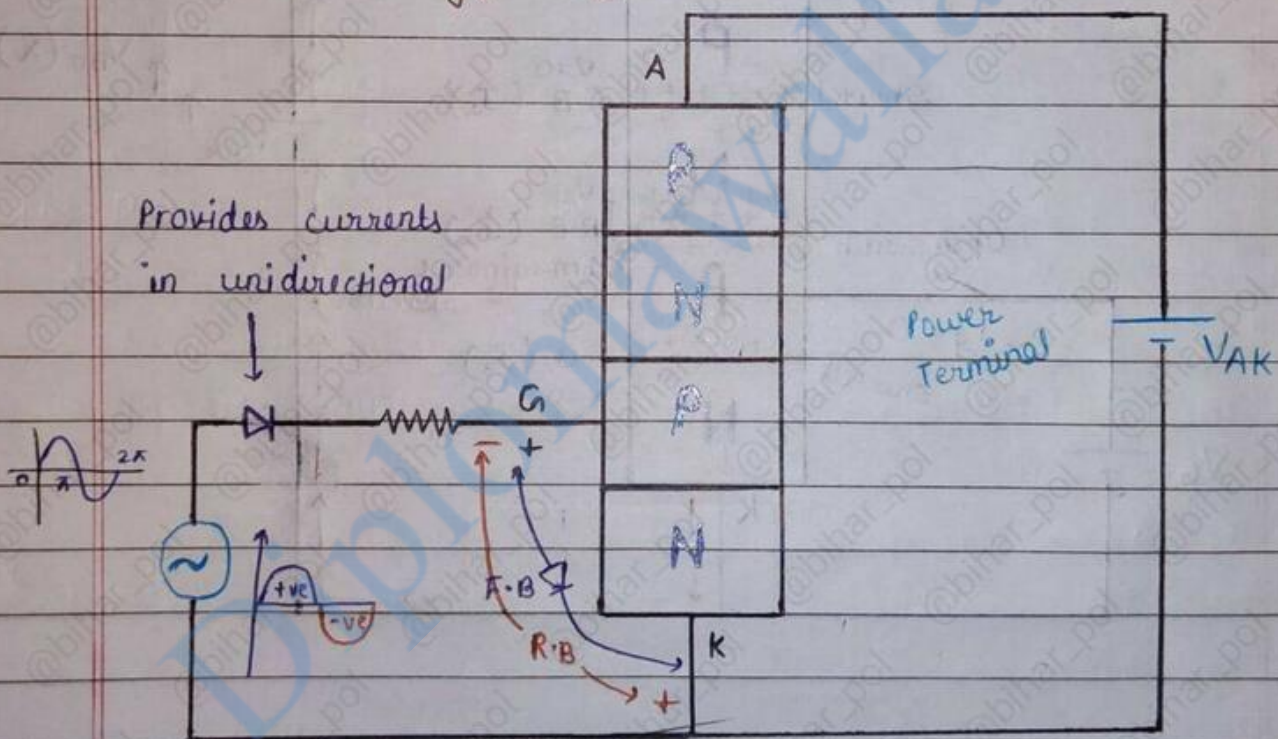 A
P
Provides currents
in unidirectional
N
Power
Terminal
VAK
G
P
- +
0 π 2π
N
~
+ve
-ve
F.B
R.B
K
+
Diplomawalla
@bihar_pol